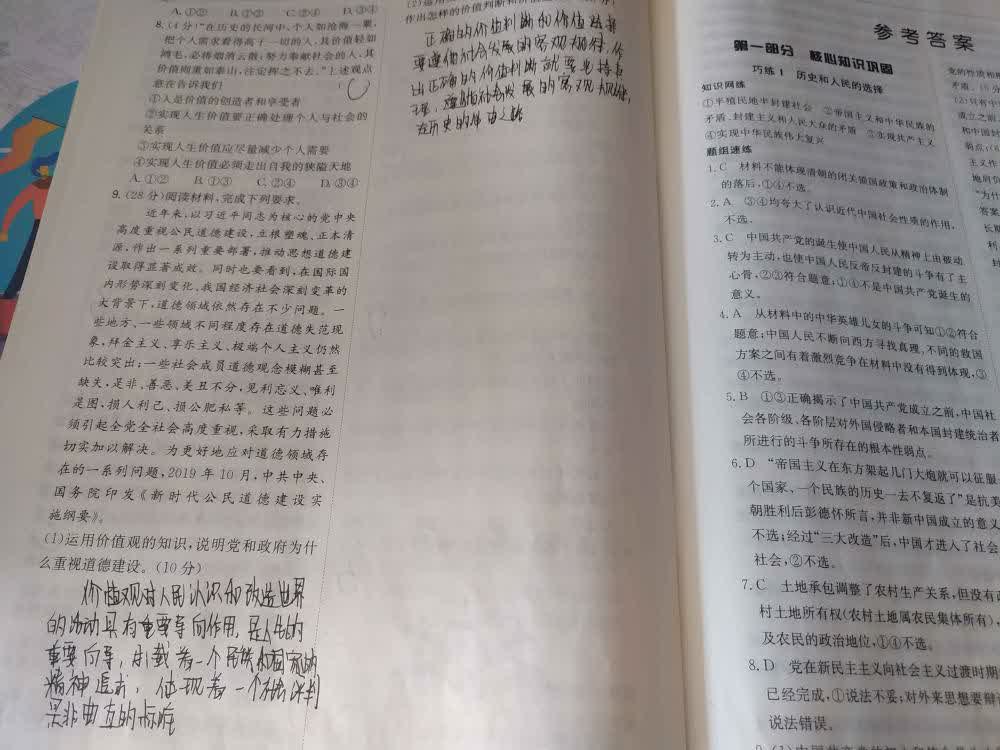 A.①② B.①③ C.②④ D.③④
8.(4分)“在历史的长河中,个人如沧海一粟,
把个人需求看得高于一切的人,其价值轻如
鸿毛,必将烟消云散;努力奉献社会的人,其
价值则重如泰山,注定挥之不去。”上述观点
意在告诉我们
①人是价值的创造者和享受者
②实现人生价值要正确处理个人与社会的
关系
③实现人生价值应尽量减少个人需要
④实现人生价值必须走出自我的狭隘天地
A.①② B.①③ C.②④ D.③④
9.(28分)阅读材料,完成下列要求。
近年来,以习近平同志为核心的党中央
高度重视公民道德建设,立根塑魂、正本清
源,作出一系列重要部署,推动思想道德建
设取得显著成效。同时也要看到,在国际国
内形势深刻变化、我国经济社会深刻变革的
大背景下,道德领域依然存在不少问题。一
些地方、一些领域不同程度存在道德失范现
象,拜金主义、享乐主义、极端个人主义仍然
比较突出;一些社会成员道德观念模糊甚至
缺失,是非、善恶、美丑不分,见利忘义、唯利
是图,损人利己、损公肥私等。这些问题必
须引起全党全社会高度重视,采取有力措施
切实加以解决。为更好地应对道德领域存
在的一系列问题,2019年10月,中共中央、
国务院印发《新时代公民道德建设实
施纲要》。
(1)运用价值观的知识,说明党和政府为什
么重视道德建设。(10分)
价值观对人民认识和改造世界
的活动具有重要导向作用,是人生的
重要向导,承载着一个民族和国家的
精神追求,体现着一个社会评判
是非曲直的标准
作出怎样的价值判断和价值
正确的价值判断和价值选择
要遵循社会发展的客观规律,作
出正确的价值判断就要坚持真
理,遵循社会发展的客观规律,
走历史的必由之路
参考答案
第一部分 核心知识巩固
巧练1 历史和人民的选择
知识网络
①半殖民地半封建社会 ②帝国主义和中华民族的
矛盾、封建主义和人民大众的矛盾 ③实现共产主义
④实现中华民族伟大复兴
题组速练
1.C 材料不能体现清朝的闭关锁国政策和政治体制
的落后,①④不选。
2.A ③④均夸大了认识近代中国社会性质的作用,
不选。
3.C 中国共产党的诞生使中国人民从精神上由被动
转为主动,也使中国人民反帝反封建的斗争有了主
心骨,②③符合题意;①④不是中国共产党诞生的
意义。
4.A 从材料中的中华英雄儿女的斗争可知①②符合
题意;中国人民不断向西方寻找真理,不同的救国
方案之间有着激烈竞争在材料中没有得到体现,③
④不选。
5.B ①③正确揭示了中国共产党成立之前,中国社
会各阶级、各阶层对外国侵略者和本国封建统治者
所进行的斗争所存在的根本性弱点。
6.D “帝国主义在东方架起几门大炮就可以征服
个国家、一个民族的历史一去不复返了”是抗美
朝胜利后彭德怀所言,并非新中国成立的意义
不选;经过“三大改造”后,中国才进入了社会
社会,②不选。
7.C 土地承包调整了农村生产关系,但没有改
村土地所有权(农村土地属农民集体所有),
及农民的政治地位,①④不选。
8.D 党在新民主主义向社会主义过渡时期
已经完成,①说法不妥;对外来思想要辩
说法错误。